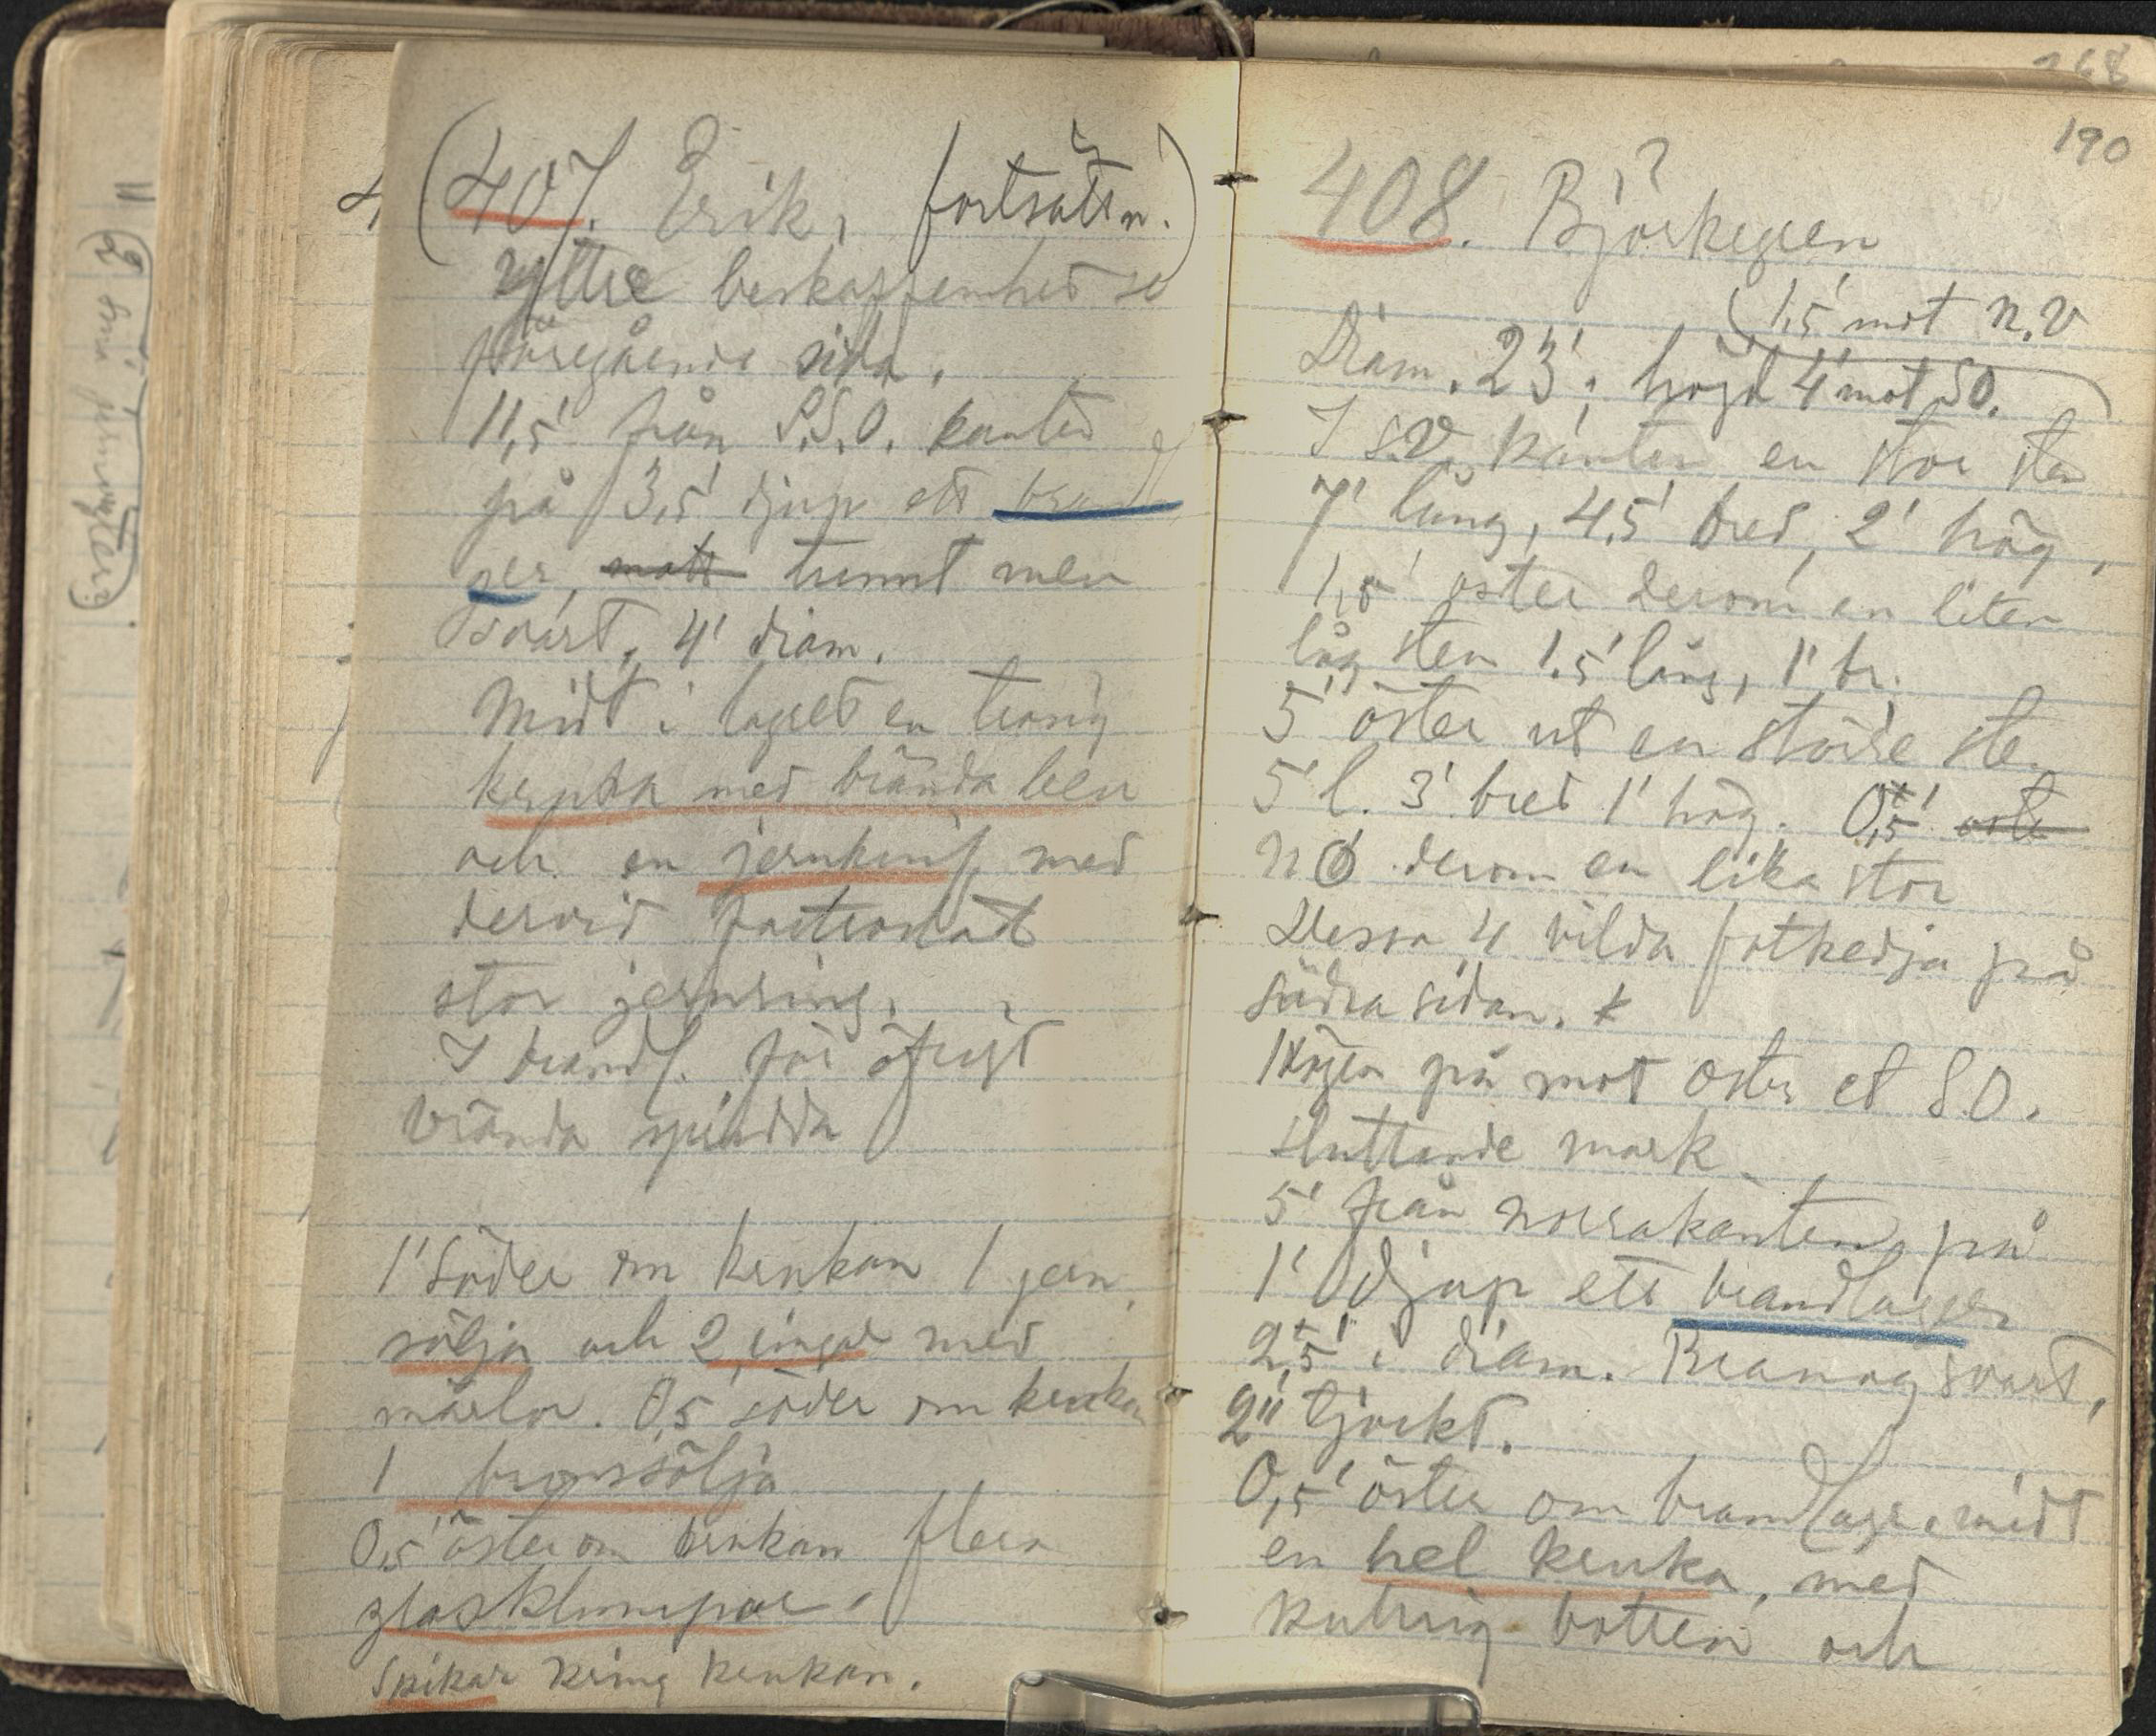 (407. Erik, fortsättn.)
yttre beskaffenhet se
föregående sida.
11,5' från S.S.O. kanten
på 3,5' djup ett brandl
ger, matt tunnt men
svart, 4' diam.
Midt i lagret en trasig
kruka med brända ben
och en jernknif med
dervid fastrostad
stor jernring.
I brandl. för öfrigt
brända
1' söder om krukan 1 jern
sölja och 2 ringar med
märlor. 0,5' söder om krukan
1 bronssölja
0,5' öster om krukan flera
glasklumpar.
spikar kring krukan.
268
190
408. Björkegren
?
(1,5' mot N.V
Diam. 23', höjd 4' mot SO.
I S.V. kanten en stor sten
7' lång, 4,5' bred, 2' hög,
1,5' öster derom en liten
låg sten 1.5' lång, 1' br.
5' öster ut en större sten
5' l. 3' bred 1' hög. 0,5' öster
NO derom en lika stor
Dessa 4 bilda fotkedja på
södra sidan.
Högen på mot öster et SO.
sluttande mark
5' från norra kanten, på
1' djup ett brandlager
2,5' i diam. svart,
2" tjockt.
0,5' öster om brandlagr. midt
en hel kruka, med
kullrig botten och